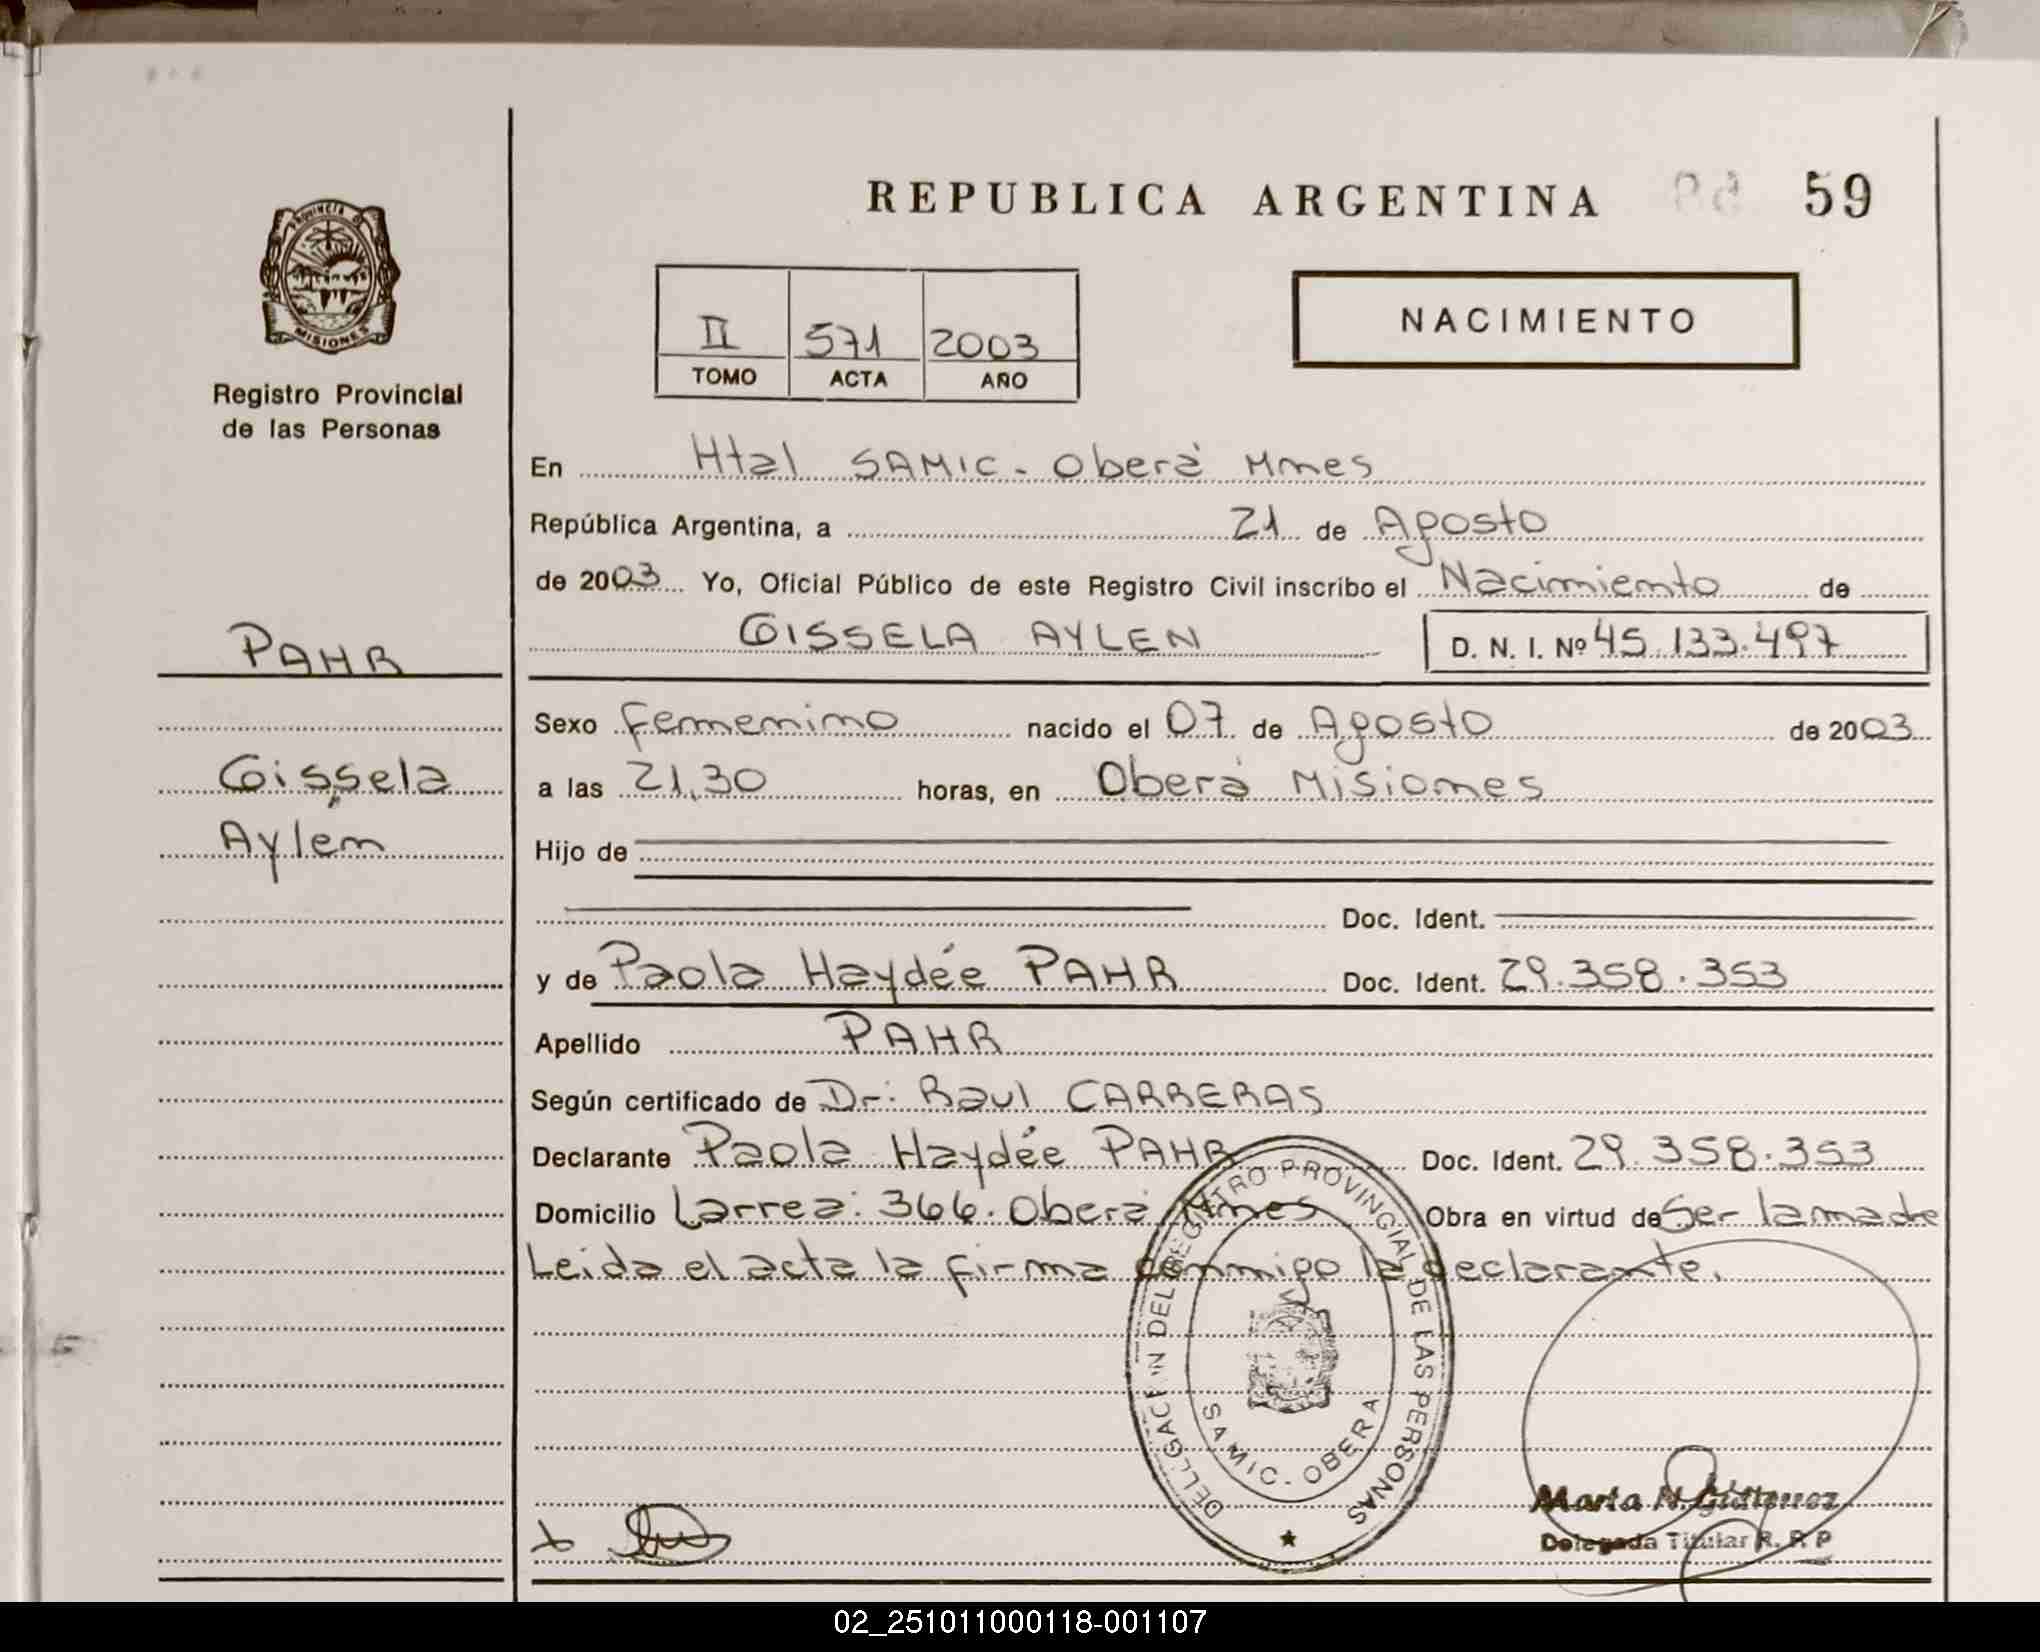 PROVINCIA D
MISIONES
Registro Provincial
de las Personas
PAHR
Gissela
Aylen
REPUBLICA ARGENTINA 59
II 571 2003
TOMO ACTA AÑO
NACIMIENTO
En Htal SAMIC - Oberá Mnes
República Argentina, a 21 de Agosto
de 2003 Yo, Oficial Público de este Registro Civil inscribo el Nacimiento de
GISSELA AYLEN D. N. I. Nº 45.133.497
Sexo femenino nacido el 07 de Agosto de 2003
a las 21,30 horas, en Oberá Misiones
Hijo de
Doc. Ident.
y de Paola Haydée PAHR Doc. Ident. 29.358.353
Apellido PAHR
Según certificado de Dr: Raul CARRERAS
Declarante Paola Haydée PAHR Doc. Ident. 29.358.353
Domicilio Larrea: 366. Oberá Mnes Obra en virtud de Ser la madre
Leida el acta la firma conmigo la declarante.
DELEGACION DEL REGISTRO PROVINCIAL DE LAS PERSONAS
SAMIC - OBERA
Marta N. Gutierrez
Delegada Titular R. P. P
02_251011000118-001107